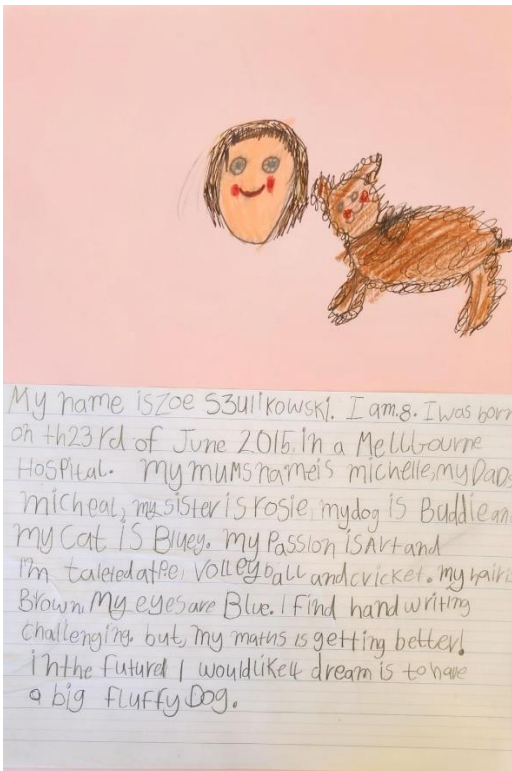 My name is Zoe S3ulikowski. I am.8. I was born
on th23rd of June 2015. in a Mellbourne
Hospital. my mums name is michelle, my Dads
micheal, my sister is rosie, my dog is Buddie and
my Cat is Bluey. my Passion is Art and
i'm taleted at Pe, volleyball and cricket. my hair is
Brown. My eyes are Blue. I find hand writing
challenging. but, my maths is getting better!
in the future I would like 4 dream is to have
a big fluffy Dog.